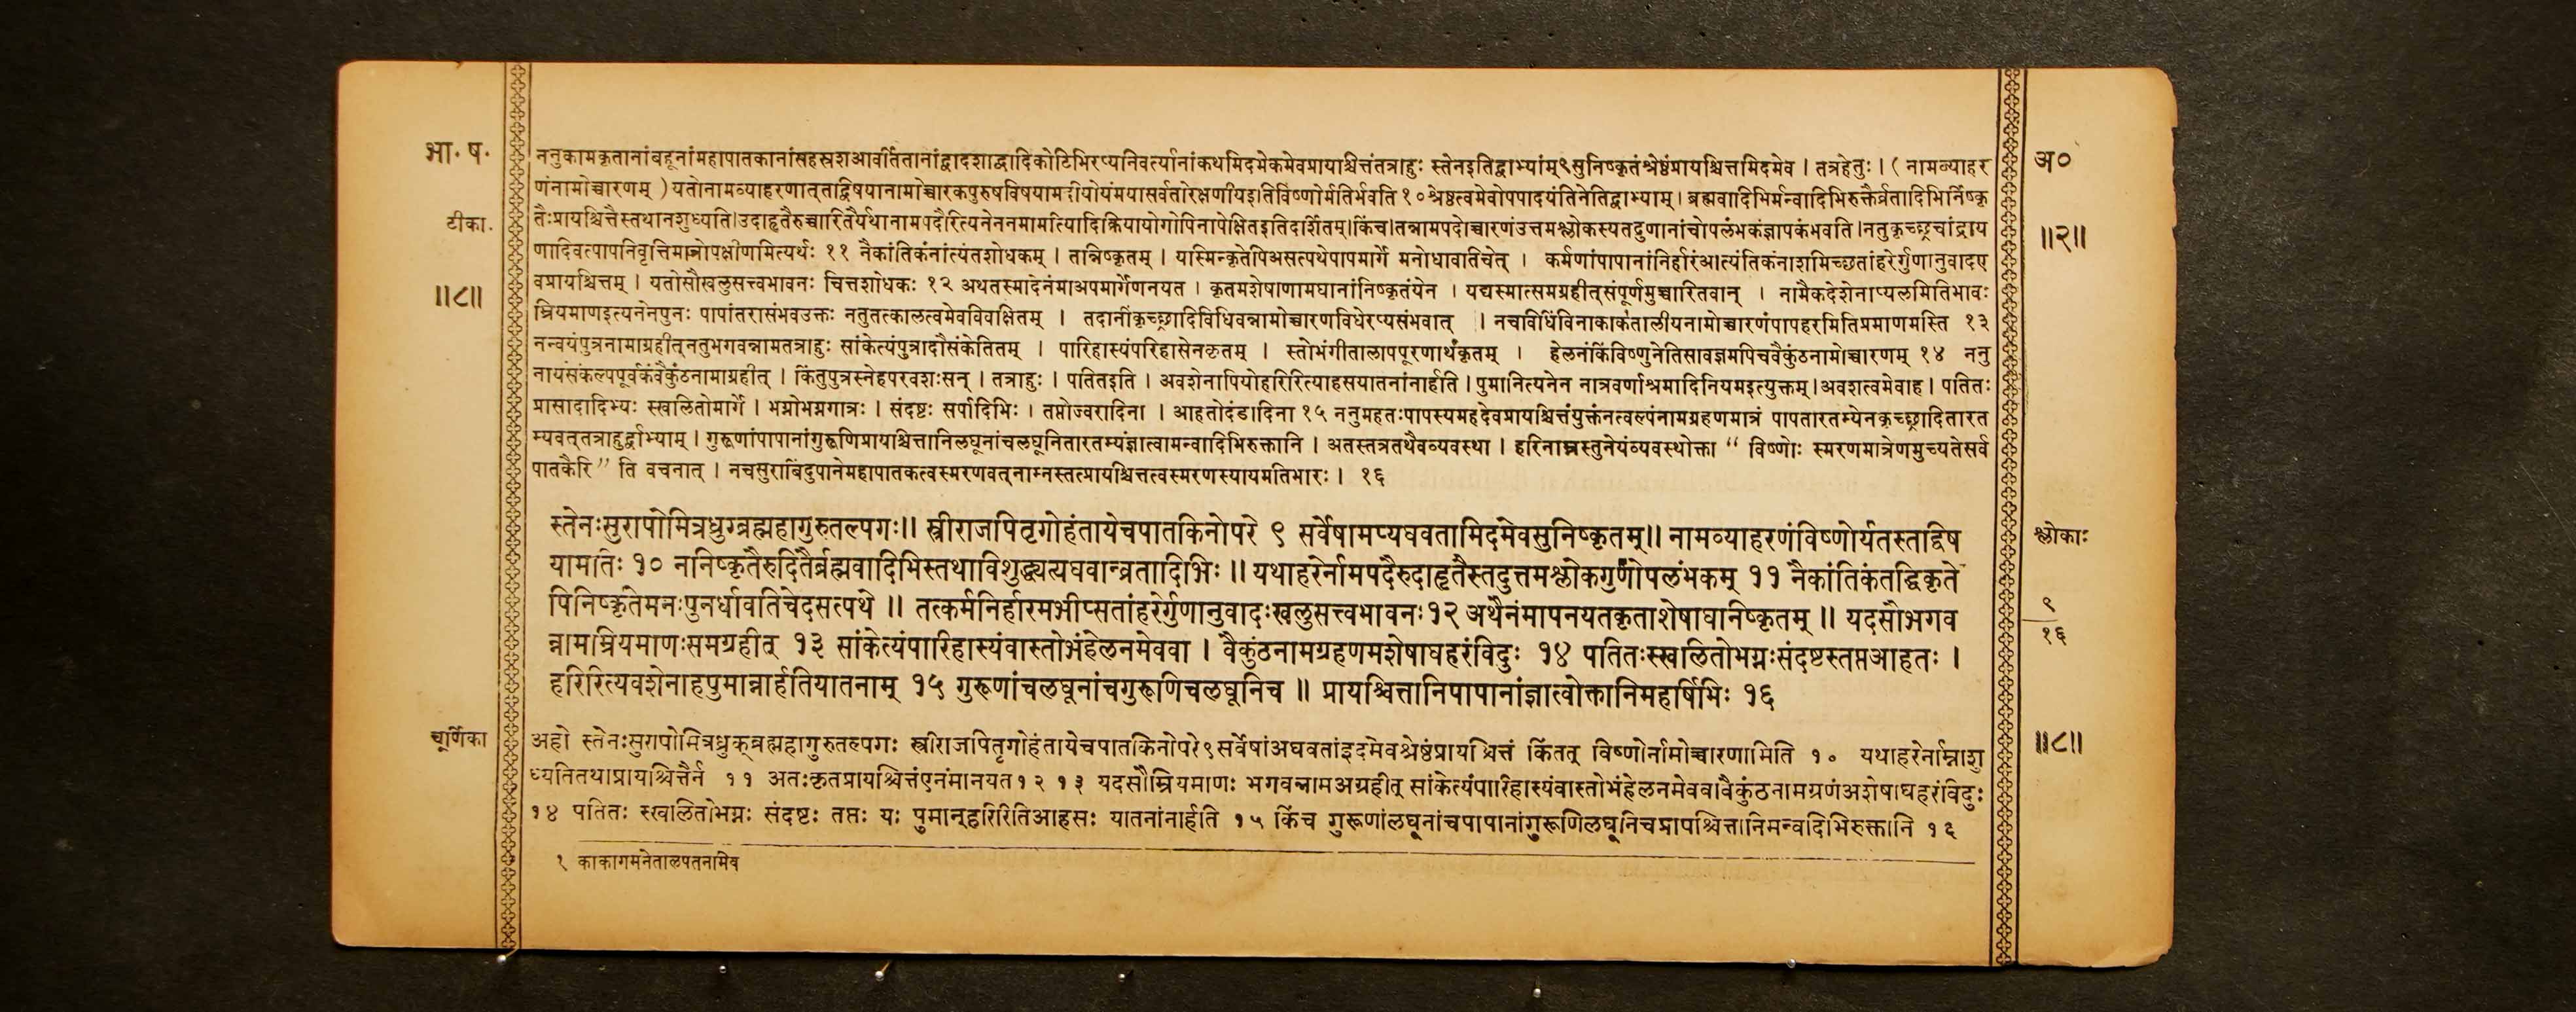 भा. ष.
ननुकामकृतानांबहूनांमहापातकानांसहस्रशआवर्तितानांद्वादशाद्बादिकोटिभिरप्यनिवर्त्यानांकथमिदमेकमेवप्रायाश्चित्तंतत्राहुः स्तेनइतिद्वाभ्यांम्९सुनिष्कृतंश्रेष्ठंप्रायश्चित्तमिदमेव । तत्रहेतुः । ( नामव्याहर
अ०
णंनामोच्चारणम् ) यतोनामव्याहरणात्तद्विषयानामोच्चारकपुरुषविषयामदीयोयंमयासर्वतोरक्षणीयइतिविष्णोर्मतिर्भवति १० श्रेष्ठत्वमेवोपपादयंतिनेतिद्वाभ्याम् । ब्रह्मवादिभिर्मन्वादिभिरुक्तैर्व्रतादिभिर्निष्कृ
टीका.
तैःप्रायश्चित्तैस्तथानशुध्यति।उदाहृतैरुच्चारितैर्यथानामपदैरित्यनेननमामत्यिादिक्रियायोगोपिनापेक्षितइतिदर्शितम्।किंच।तन्नामपदोच्चारणंउत्तमश्लोकस्यतद्गुणानांचोपलंभकंज्ञापकंभवति।नतुकृच्छ्रचांद्राय
॥२॥
णादिवत्पापनिवृत्तिमात्रोपक्षीणमित्यर्थः ११ नैकांतिकंनांत्यंतशोधकम् । तन्निष्कृतम् । यस्मिन्कृतेपिअसत्पथेपापमार्गे मनोधावातिचेत् । कर्मणांपापानांनिर्हारंआत्यंतिकंनाशमिच्छतांहरेर्गुणानुवादए
॥८॥
वप्रायश्चित्तम् । यतोसौखलुसत्त्वभावनः चित्तशोधकः १२ अथतस्मादेनंमाअपमार्गेणनयत । कृतमशेषाणामघानांनिष्कृतंयेन । यद्यस्मात्समग्रहीत्संपूर्णमुच्चारितवान् । नामैकदेशेनाप्यलमितिभावः
म्रियमाणइत्यनेनपुनः पापांतरासंभवउक्तः नतुतत्कालत्वमेवविवक्षितम् । तदानींकृच्छ्रादिविधिवन्नामोच्चारणविधेरप्यसंभवात् । नचविधिंविनाकाकतालीयनामोच्चारणंपापहरमितिप्रमाणमस्ति १३
नन्वयंपुत्रनामाग्रहीत्नतुभगवन्नामतत्राहुः सांकेत्यंपुत्रादौसंकेतितम् । पारिहास्यंपरिहासेनकृतम् । स्तोभंगीतालापपूरणार्थंकृतम् । हेलनंकिंविष्णुनेतिसावज्ञमपिचवैकुंठनामोच्चारणम् १४ ननु
नायंसंकल्पपूर्वकंवैकुंठनामाग्रहीत् । किंतुपुत्रस्नेहपरवशःसन् । तत्राहुः । पतितइति । अवशेनापियोहरिरित्याहसयातनांनार्हति । पुमानित्यनेन नात्रवर्णाश्रमादिनियमइत्युक्तम्।अवशत्वमेवाह । पतितः
प्रासादादिभ्यः स्खलितोमार्गे । भग्नोभग्नगात्रः । संदष्टः सर्पादिभिः । तप्तोज्वरादिना । आहतोदंडादिना १५ ननुमहतःपापस्यमहदेवप्रायश्चित्तंयुक्तंनत्वल्पंनामग्रहणमात्रं पापतारतम्येनकृच्छ्रादितारत
म्यवत्तत्राहुर्द्वाभ्याम् । गुरूणांपापानांगुरूणिप्रायाश्चित्तानिलघूनांचलघूनितारतम्यंज्ञात्वामन्वादिभिरुक्तानि । अतस्तत्रतथैवव्यवस्था । हरिनाम्नस्तुनेयंव्यवस्थोक्ता “ विष्णोः स्मरणमात्रेणमुच्यतेसर्व
पातकैरि” ति वचनात् । नचसुराबिंदुपानेमहापातकत्वस्मरणवत्नाम्नस्तत्प्रायश्चित्तत्वस्मरणस्यायमतिभारः । १६
स्तेनःसुरापोमित्रध्रुग्ब्रह्महागुरुतल्पगः॥ स्त्रीराजपितृगोहंतायेचपातकिनोपरे ९ सर्वेषामप्यघवतामिदमेवसुनिष्कृतम्॥ नामव्याहरणंविष्णोर्यतस्तद्विष
श्लोकाः
यामतिः १० ननिष्कृतैरुदितैर्ब्रह्मवादिभिस्तथाविशुद्ध्यत्यघवान्व्रतादिभिः ॥ यथाहरेर्नामपदैरुदाहृतैस्तदुत्तमश्लोकगुणोपलंभकम् ११ नैकांतिकंतद्धिकृते
पिनिष्कृतेमनःपुनर्धावतिचेदसत्पथे ॥ तत्कर्मनिर्हारमभीप्सतांहरेर्गुणानुवादःखलुसत्त्वभावनः१२ अथैनंमापनयतकृताशेषाघानिष्कृतम् ॥ यदसौभगव
९
१६
न्नामम्रियमाणःसमग्रहीत् १३ सांकेत्यंपारिहास्यंवास्तोभंहेलनमेववा । वैकुंठनामग्रहणमशेषाघहरंविदुः १४ पतितःस्खलितोभग्नःसंदष्टस्तप्तआहतः ।
हरिरित्यवशेनाहपुमान्नार्हतियातनाम् १५ गुरूणांचलघूनांचगुरूणिचलघूनिच ॥ प्रायश्चित्तानिपापानांज्ञात्वोक्तानिमहर्षिभिः १६
चूर्णिका
अहो स्तेनःसुरापोमित्रध्रुक्ब्रह्महागुरुतल्पगः स्त्रीराजपितृगोहंतायेचपातकिनोपरे९सर्वेषांअघवतांइदमेवश्रेष्ठंप्रायश्चित्तं किंतत् विष्णोर्नामोच्चारणामिति १० यथाहरेर्नाम्नाशु
॥८॥
ध्यतितथाप्रायश्चित्तैर्न ११ अतःकृतप्रायश्चित्तंएनंमानयत१२ १३ यदसौम्रियमाणः भगवन्नामअग्रहीत् सांकेत्यंपारिहास्यंवास्तोभंहेलनमेववावैकुंठनामग्रणंअशेषाघहरंविदुः
१४ पतितः स्खलितोभग्नः संदष्टः तप्तः यः पुमान्हरिरितिआहसः यातनांनार्हति १५ किंच गुरूणांलघूनांचपापानांगुरूणिलघूनिचप्रापश्चित्तानिमन्वदिभिरुक्तानि १६
१ काकागमनेतालपतनामेव